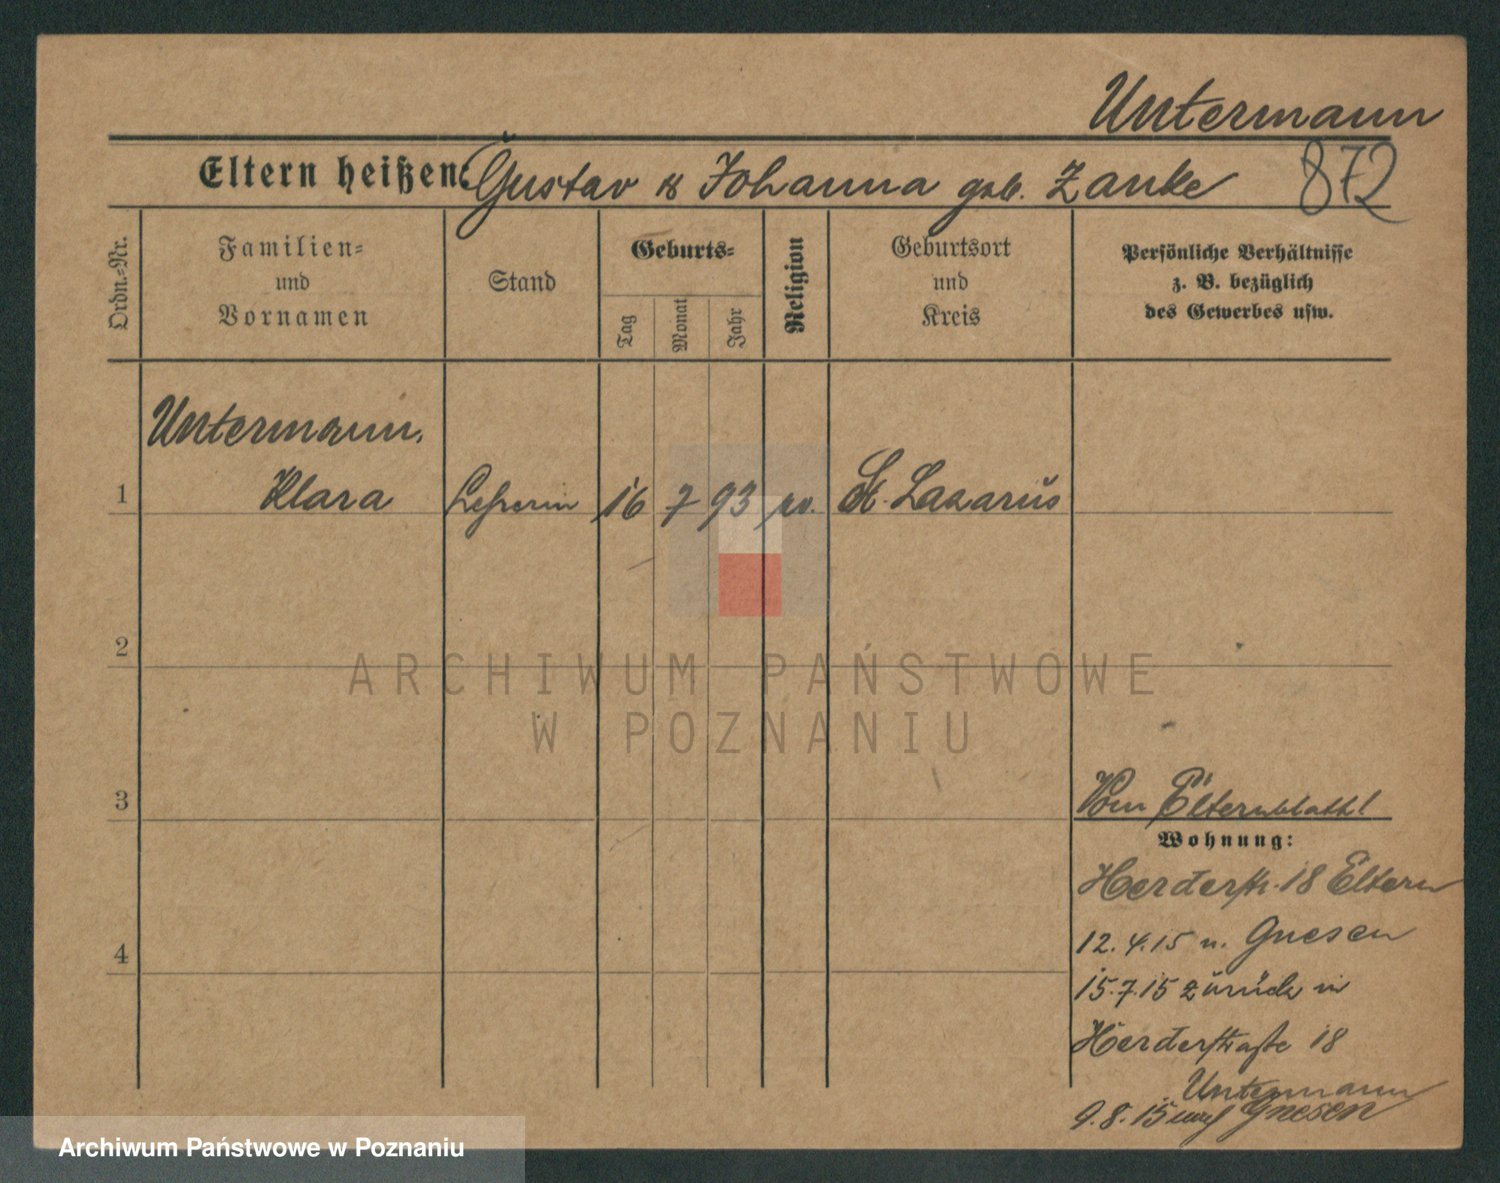 Untermann
Eltern heißen: Gustav u. Johanna geb. Zanke 872
Ordn.=Nr.
Familien=
und
Vornamen
Stand
Geburts=
Tag
Monat
Jahr
Religion
Geburtsort
und
Kreis
Persönliche Verhältnisse
z. B. bezüglich
des Gewerbes usw.
Untermann,
1 Klara Lehrerin 16 7 93 ev. St. Lazarus
2
ARCHIWUM PAŃSTWOWE
W POZNANIU
3
Vom Elternblatt!
Wohnung:
Herderstr. 18 Eltern
12.4.15 n. Gnesen
4
15.7.15 zurück in
Herderstraße 18
Untermann
9.8.15 nach Gnesen
Archiwum Państwowe w Poznaniu